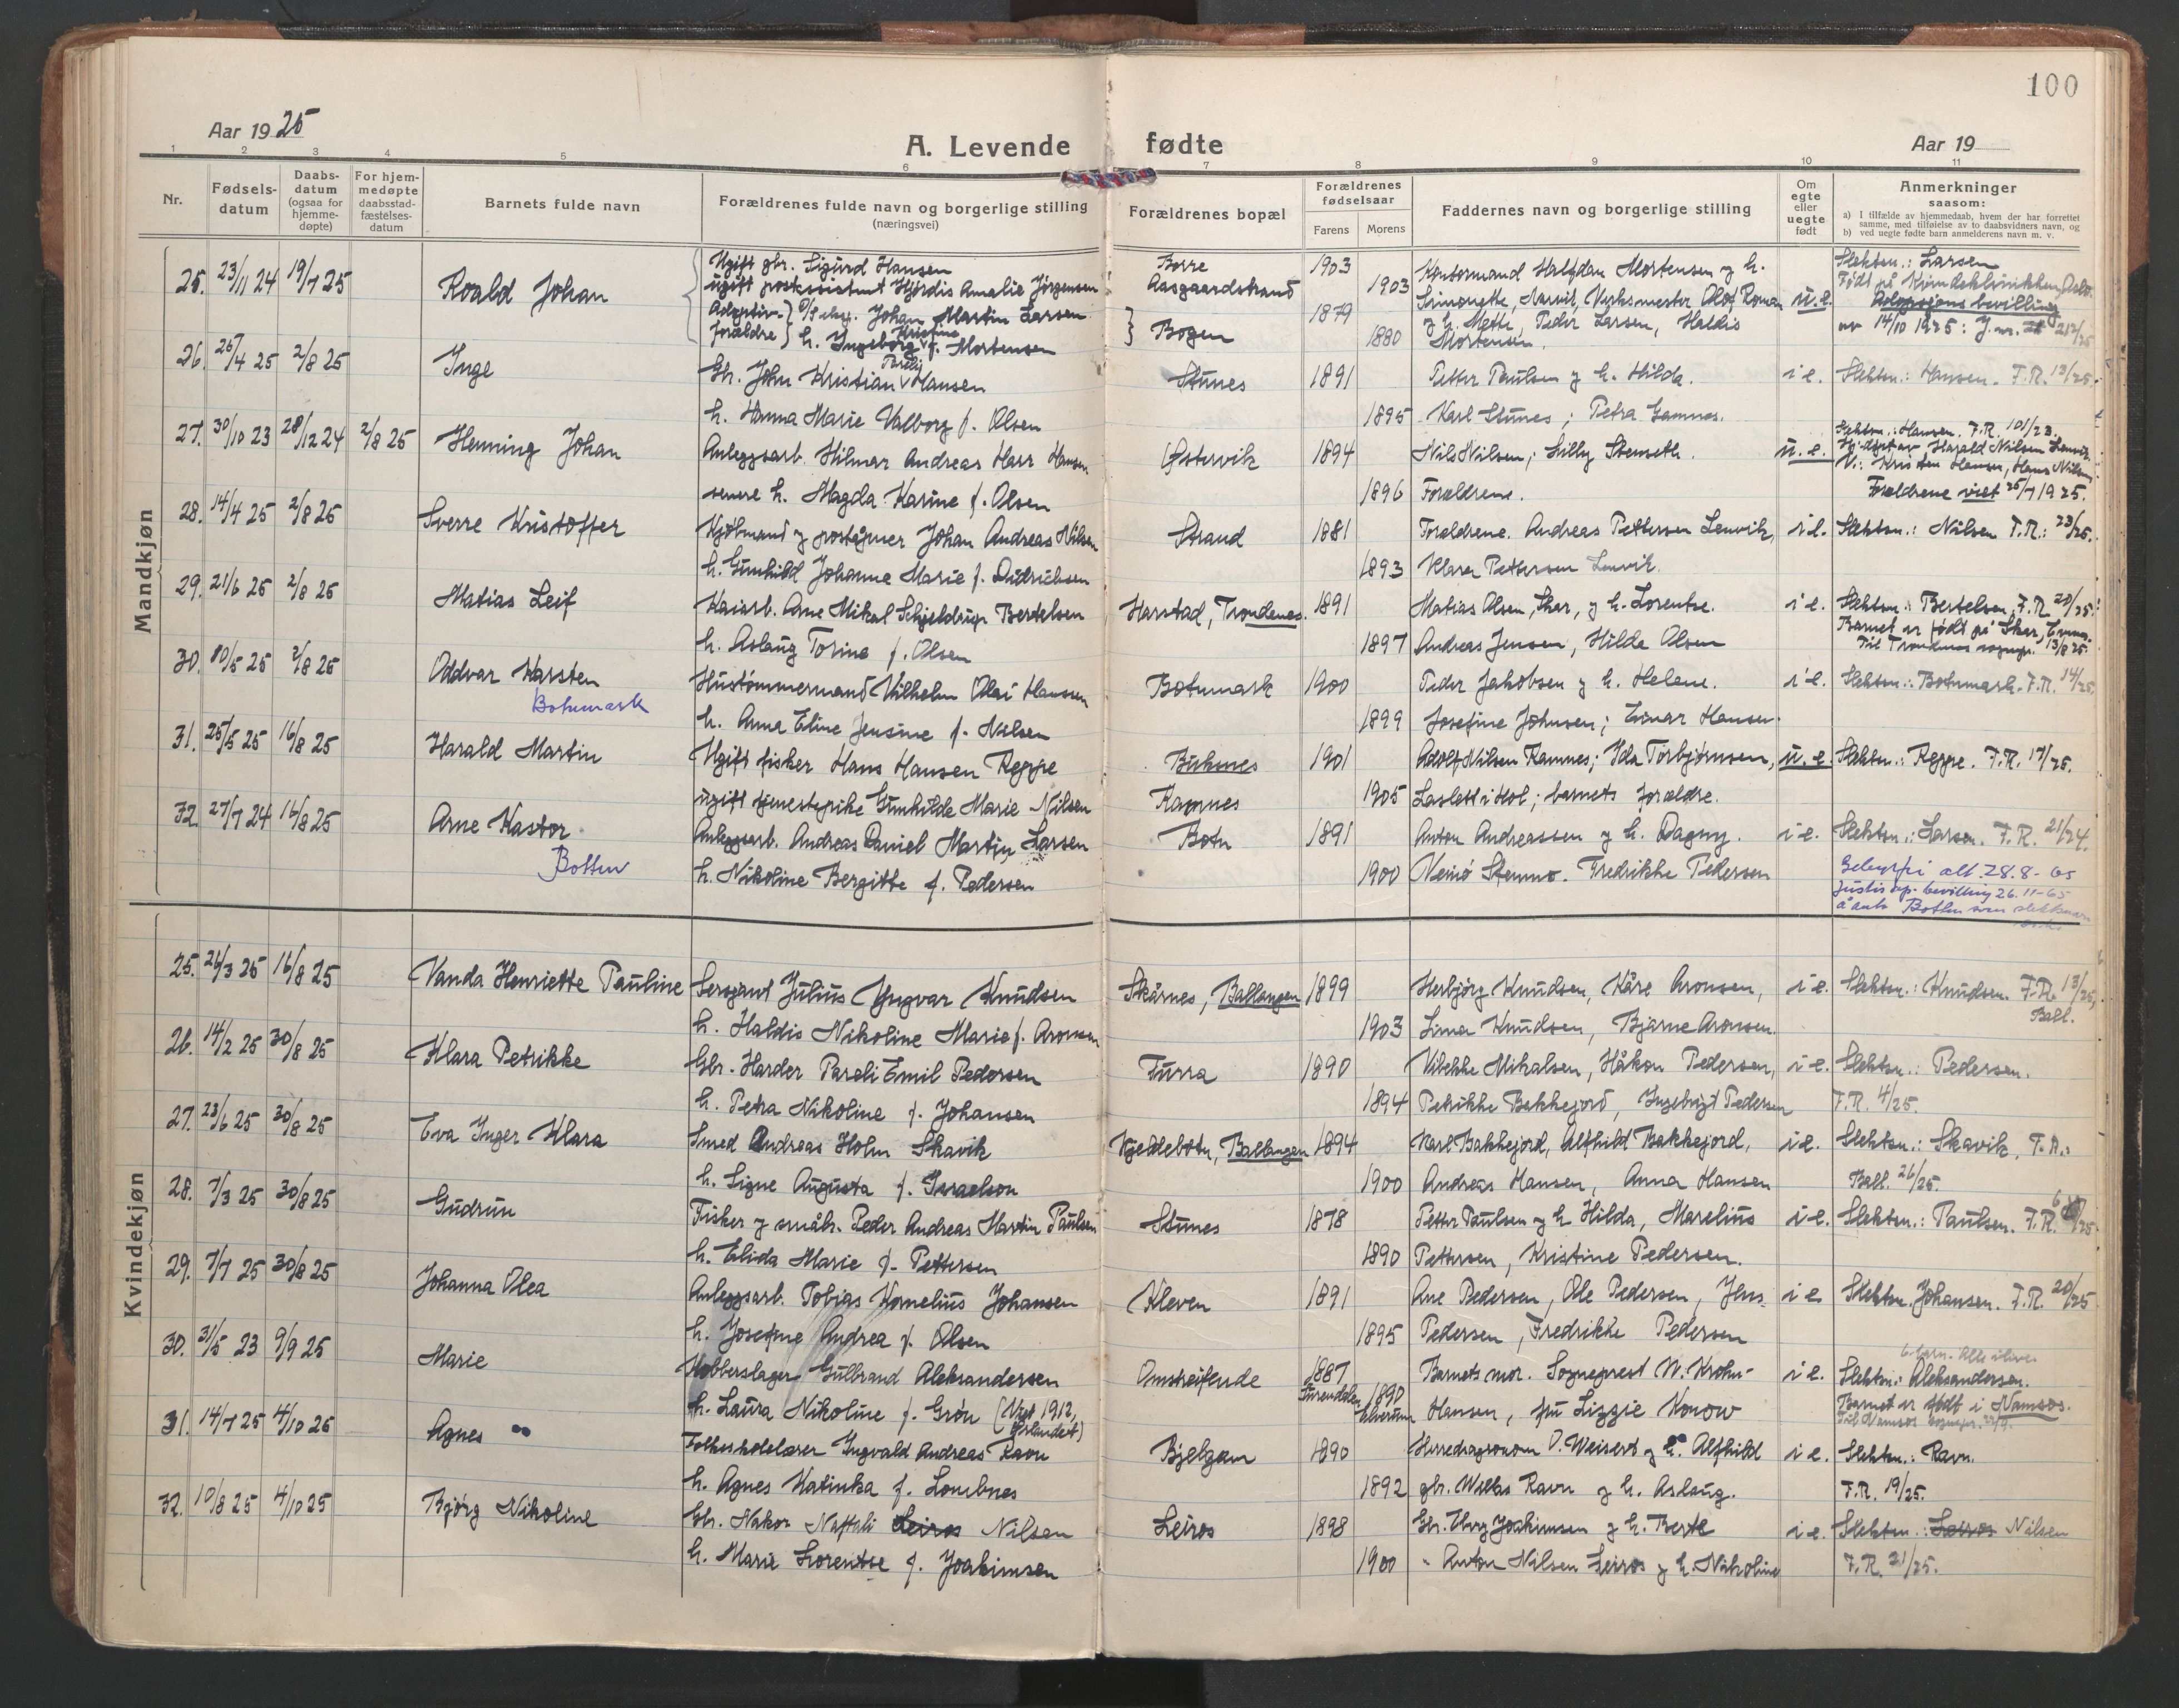 100
Aar 1925
A. Levende fødte
Aar 19
1 2 3 4 5 6 7 8 9 10 11
Nr.
Fødsels-
datum
Daabs-
datum
(ogsaa for
hjemme-
døpte)
For hjem-
medøpte
daabsstad-
fæstelses-
datum
Barnets fulde navn
Forældrenes fulde navn og borgerlige stilling
(næringsvei)
Forældrenes bopæl
Forældrenes
fødselsaar
Farens Morens
Faddernes navn og borgerlige stilling
Om
egte
eller
uegte
født
Anmerkninger
saasom:
a) I tilfælde av hjemmedaab, hvem der har forrettet
samme, med tilføielse av to daabsvidners navn, og
b) ved uegte fødte barn anmelderens navn m. v.
Mandkjøn
25. 23/11 24 19/7 25 Roald Johan
Ugift gbr. Sigurd Hansen Borre 1903 Kontormand Halfdan Mortensen og h. Slektsn.: Larsen
ugift postassistent Hjørdis Amalie Jørgensen Aasgaardstrand 1903 Simonette, Narvik, Verksmester Olof Roman u.e. Født på Kvindeklinikken, Oslo.
Adoptiv- Johan Martin Larsen 1879 og h. Mette, Peder Larsen, Haldis Adopsjons bevilling
forældre h. Ingeborg Kristine f. Mortensen Bogen 1880 Mortensen. av 14/10 1925: J.nr.
26. 25/4 25 2/8 25 Inge Gbr. John Kristian Hansen Stunes 1891 Petter Paulsen og h. Hilda. i e. Slektsn.: Hansen. F.R. 13/25.
h. Hanna Marie Valborg f. Olsen 1895 Karl Stunes; Petra Gamnes.
27. 30/10 23 28/12 24 2/8 25 Henning Johan Anleggsarb. Hilmar Andreas Harr Hansen Østervik 1894 Nils Nilsen; Lilly Stenseth. u. e. Slektsn.: Hansen. F.R. 101/23.
Hj.døpt av Harald Nilsen Lenvik.
V.: Kristen Hansen, Hans Nilsen
senere h. Magda Karine f. Olsen 1896 Forældrene. Forældrene viet 25/7 1925.
28. 14/4 25 2/8 25 Sverre Kristoffer Kjøbmand og postaapner Johan Andreas Nilsen Strand 1881 Forældrene. Andreas Pettersen Lenvik, i e. Slektsn.: Nilsen F.R.: 23/25.
h. Gunhild Johanne Marie f. Didriksen 1893 Klara Pettersen Lenvik.
29. 21/6 25 2/8 25 Matias Leif Kaiarb. Arne Mikal Schjeldrup Bertelsen Harstad, Trondenes. 1891 Matias Olsen, Skar, og h. Lorentse. i e. Slektsn.: Bertelsen. F.R. 20/25.
Barnet er født på Skar,
h. Aslaug Torine f. Olsen 1897 Andreas Jensen, Hilda Olsen Til Trondenes sognepr. 13/8 25.
30. 10/5 25 2/8 25 Oddvar Karsten Hustømmermand Vilhelm Olai Hansen Botnmark 1900 Peder Jakobsen og h. Helene. i e. Slektsn.: Botnmark. F.R. 14/25.
Botnmark h. Anna Eline Jensine f. Nilsen 1899 Josefine Johnsen; Einar Hansen.
31. 25/5 25 16/8 25 Harald Martin Ugift fisker Hans Hansen Reppe Buknes 1901 Adolf Nilsen Ramnes; Ida Torbjørnsen, u. e. Slektsn.: Reppe. F.R. 17/25.
ugift tjenestepike Gunhilde Marie Nilsen Ramnes 1905 Laslett i Hol; barnets forældre.
32. 27/7 24 16/8 25 Arne Kastor Anleggsarb. Andreas Daniel Martin Larsen Botn 1891 Anton Andreassen og h. Dagny. i e. Slektsn.: Larsen. F.R. 21/24.
Botten h. Nikoline Bergitte f. Pedersen 1900 Fredrikke Pedersen Gebyrfri att. 28.8-65
Justisdep. bevilling 26.11-65
å anta Botten som slektsnavn
Kvindekjøn
25. 26/3 25 16/8 25 Vanda Henriette Pauline Sersjant Julius Yngvar Knudsen Skårnes, Ballangen 1899 Herbjørg Knudsen, Kåre Aronsen, i e. Slektsn.: Knudsen. F.R. 13/25,
Ball.
h. Haldis Nikoline Marie f. Aronsen 1903 Lina Knudsen, Bjarne Aronsen.
26. 14/2 25 30/8 25 Klara Petrikke Gbr. Harder Pareli Emil Pedersen Furra 1890 Vibekke Mikalsen, Håkon Pedersen, i e. Slektsn.: Pedersen.
h. Petra Nikoline f. Johansen 1894 Petrikke Bakkejord, Ingebrigt Pedersen F.R. 4/25.
27. 23/6 25 30/8 25 Eva Inger Klara Smed Andreas Holm Skavik Kjeldebotn, Ballangen 1894 Karl Bakkejord, Alfhild Bakkejord, i e. Slektsn.: Skavik, F.R.:
h. Signe Augusta f. Israelson 1900 Andreas Hansen, Anna Hansen Ball. 26/25.
28. 7/3 25 30/8 25 Gudrun Fisker og småbr. Peder Andreas Martin Paulsen Stunes 1878 Petter Paulsen og h Hilda, Marelius i e. Slektsn.: Paulsen. F.R. 6/25.
h. Elida Marie f. Pettersen 1890 Pettersen, Kristine Pedersen.
29. 7/7 25 30/8 25 Johanna Olea Anleggsarb. Tobias Kornelius Johansen Kleven 1891 Ane Pedersen, Ole Pedersen, Jens i e Slektsn. Johansen. F.R. 20/25
h. Josefine Andrea f. Olsen 1895 Pedersen, Fredrikke Pedersen
30. 31/5 23 9/9 25 Marie Kobberslager Gulbrand Aleksandersen Omstreifende 1887 Barnets mor. Sogneprest W. Krohn- i e. 6. barn. Alle ilive.
Slektsn: Aleksandersen.
h. Laura Nikoline f. Grøn (Viet 1912, Ørlandet) Surendalen 1890 Elverum Hansen, fru Lizzie Konow Barnet er født i Namsos.
Til Namsos sognepr.
31. 14/7 25 4/10 25 Agnes Folkeskolelærer Ingvald Andreas Ravn Bjelgam 1890 Herredsagronom O. Weisert og h. Alfhild i e. Slektsn.: Ravn.
h. Agnes Katinka f. Lombnes 1892 gbr. Willas Ravn og h. Aslaug. F.R. 19/25.
32. 10/8 25 4/10 25 Bjørg Nikoline Gbr. Nakor Naftali Leiros Nilsen Leiros 1898 Gbr. Joakimsen og h. Berte i e. Slektsn.: Leiros Nilsen
h. Marie Lorentse f. Joakimsen 1900 Anton Nilsen Leiros og h. Nikoline F.R. 21/25.